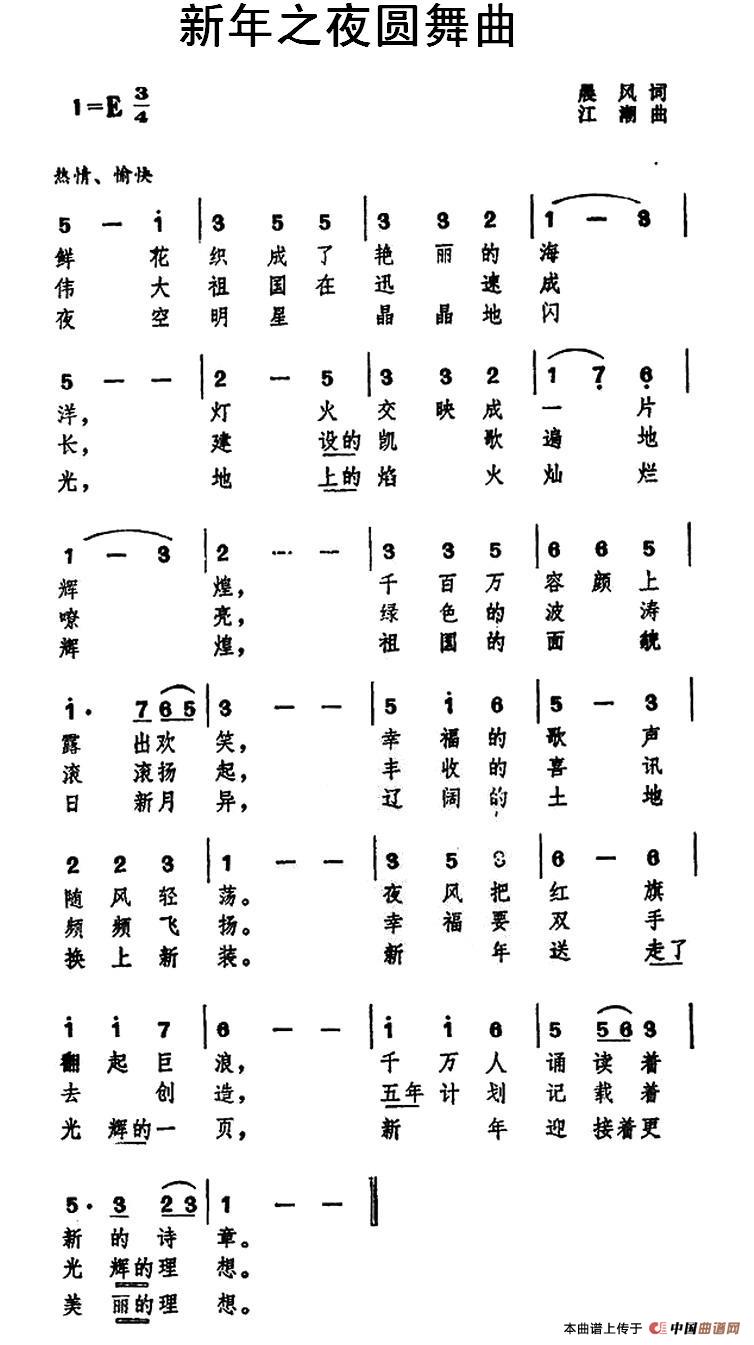 新年之夜圆舞曲
1=E 3/4
晨 风 词
江 潮 曲
热情、愉快
5 — i | 3 5 5 | 3 3 2 | 1 — 3 |
鲜 花 织 成 了 艳 丽 的 海
伟 大 祖 国 在 迅 速 成
夜 空 明 星 晶 晶 地 闪
5 — — | 2 — 5 | 3 3 2 | 1 7 6 |
洋， 灯 火 交 映 成 一 片
长， 建 设的 凯 歌 遍 地
光， 地 上的 焰 火 灿 烂
1 — 3 | 2 — — | 3 3 5 | 6 6 5 |
辉 煌， 千 百 万 容 颜 上
嘹 亮， 绿 色 的 波 涛
辉 煌， 祖 国 的 面 貌
i· 7 6 5 | 3 — — | 5 i 6 | 5 — 3 |
露 出 欢 笑， 幸 福 的 歌 声
滚 滚 扬 起， 丰 收 的 喜 讯
日 新 月 异， 辽 阔 的 土 地
2 2 3 | 1 — — | 3 5 3 | 6 — 6 |
随 风 轻 荡。 夜 风 把 红 旗
频 频 飞 扬。 幸 福 要 双 手
换 上 新 装。 新 年 送 走了
i i 7 | 6 — — | i i 6 | 5 5 6 3 |
翻 起 巨 浪， 千 万 人 诵 读 着
去 创 造， 五年 计 划 记 载 着
光 辉的 一 页， 新 年 迎 接着 更
5· 3 2 3 | 1 — — ‖
新 的 诗 章。
光 辉的 理 想。
美 丽的 理 想。
本曲谱上传于 中国曲谱网